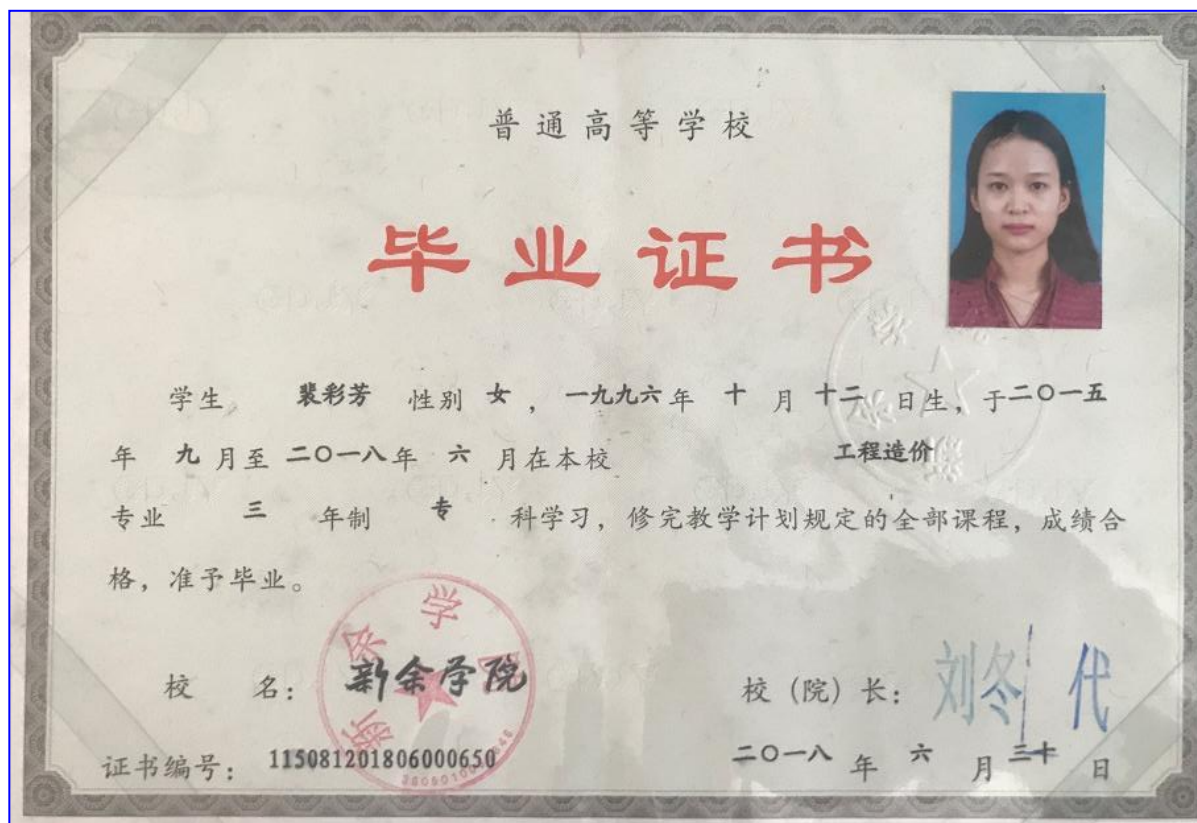 普通高等学校
毕业证书
学生 裴彩芳 性别 女，一九九六年 十 月 十二 日生，于二〇一五
年 九 月至 二〇一八年 六 月在本校 工程造价
专业 三 年制 专 科学习，修完教学计划规定的全部课程，成绩合
格，准予毕业。
校 名： 新余学院
校（院）长： 刘冬代
证书编号： 115081201806000650
二〇一八 年 六 月 三十 日